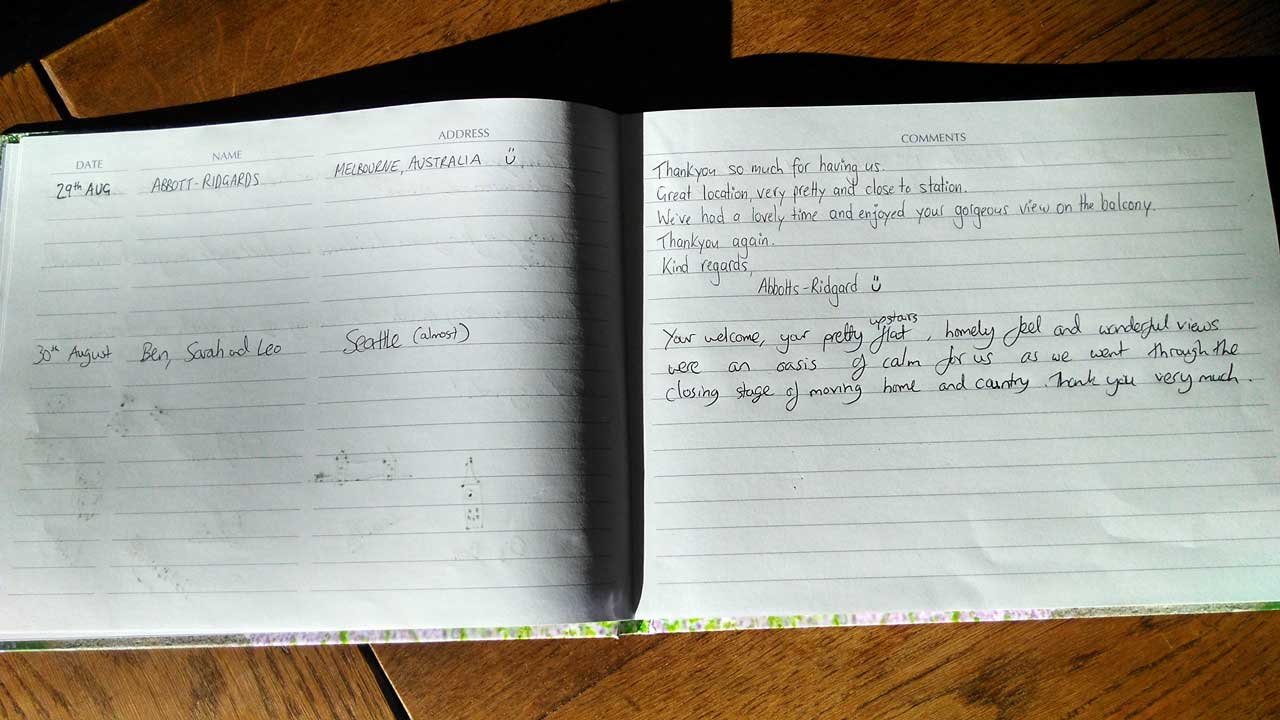 DATE NAME ADDRESS
29th AUG ABBOTT-RIDGARDS MELBOURNE, AUSTRALIA
30th August Ben, Sarah and Leo Seattle (almost)
COMMENTS
Thankyou so much for having us.
Great location, very pretty and close to station.
We've had a lovely time and enjoyed your gorgeous view on the balcony.
Thankyou again.
Kind regards,
Abbotts-Ridgard
upstairs
Your welcome, your pretty flat, homely feel and wonderful views
were an oasis of calm for us as we went through the
closing stage of moving home and country. Thank you very much.